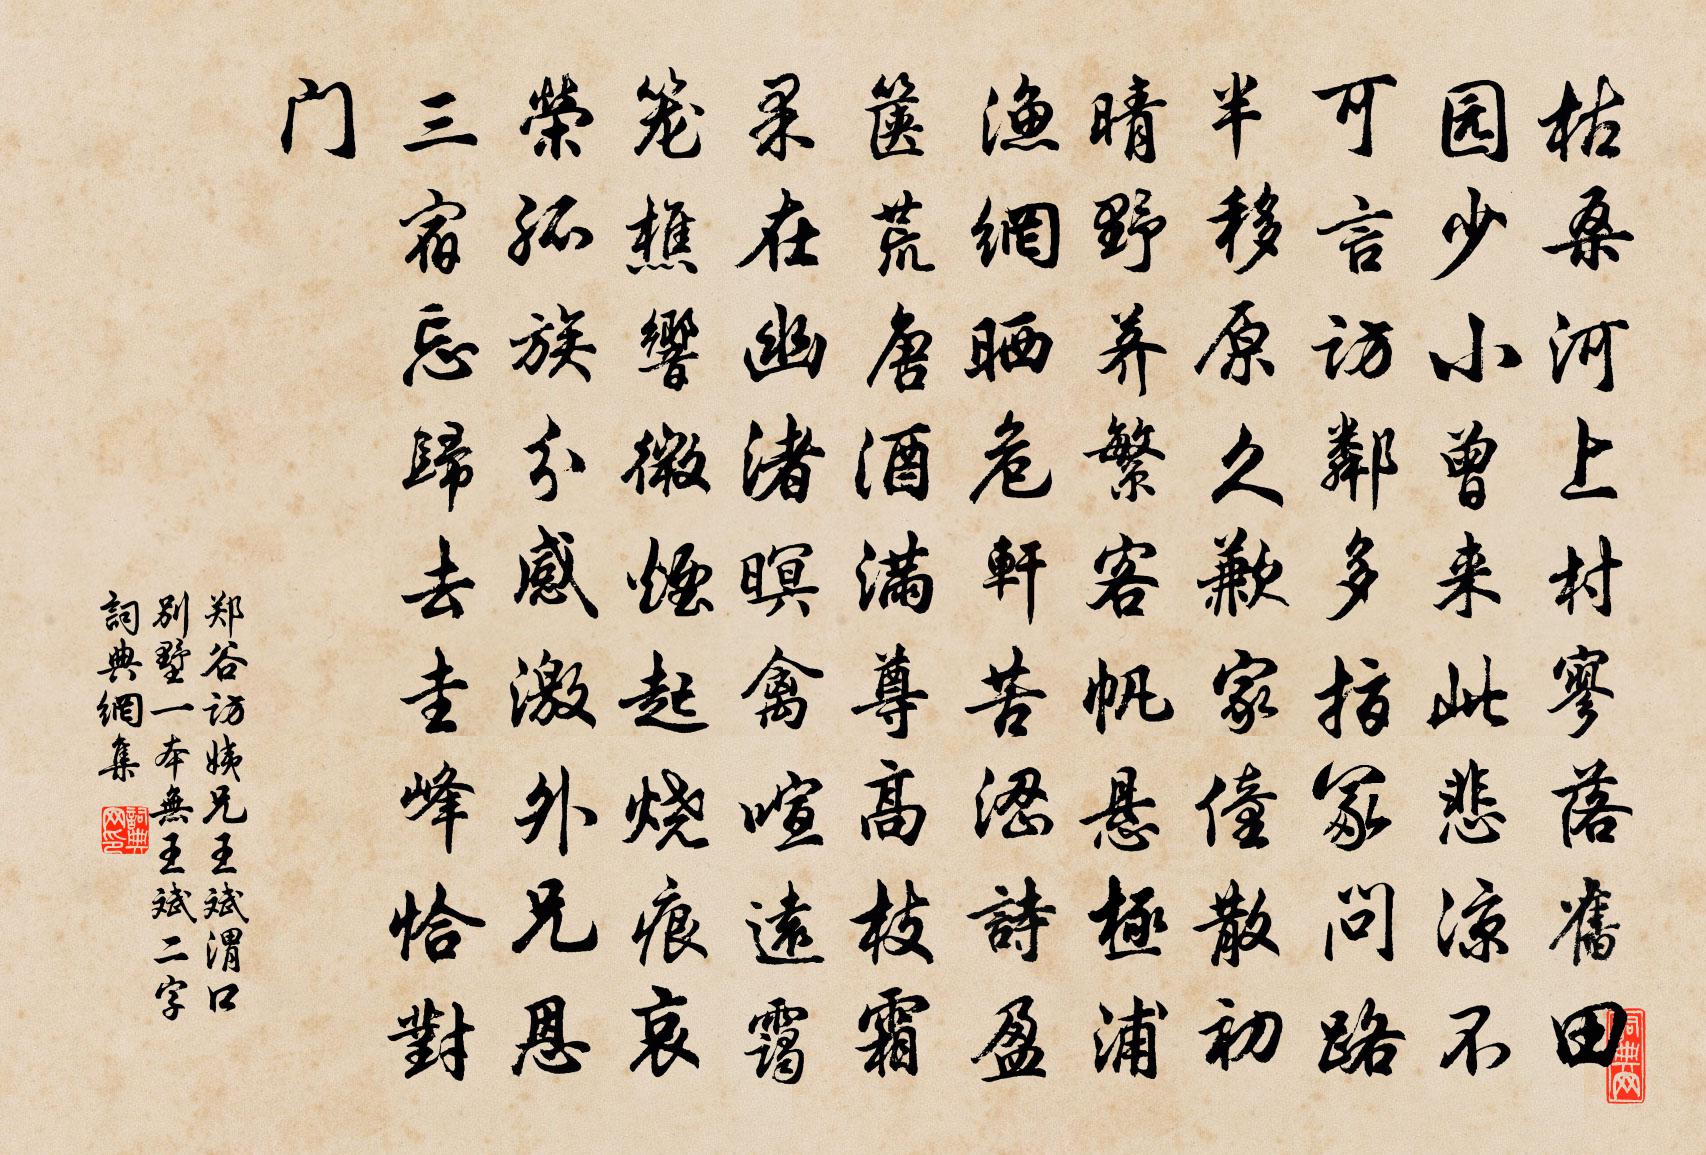 枯桑河上村寥落舊田
园少小曾来此悲涼不
可言访鄰多指冢问路
半移原久歉家僮散初
晴野荠繁客帆悬極浦
渔網晒危軒苦涩詩盈
箧荒唐酒满尊高枝霜
果在幽渚暝禽喧遠靄
笼樵響微煙起烧痕哀
榮孤族分感激外兄恩
三宿忘歸去圭峰恰對
门
郑谷访姨兄王斌渭口
别墅一本無王斌二字
詞典網集
詞典网印
詞典网